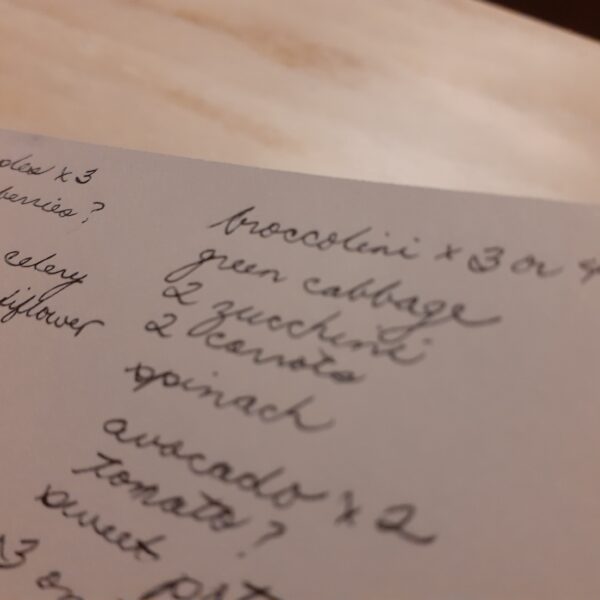 x 3
berries?
celery
broccolini x 3 or 4
green cabbage
2 zucchini
2 carrots
spinach
avocado x 2
tomato?
sweet
x3 or